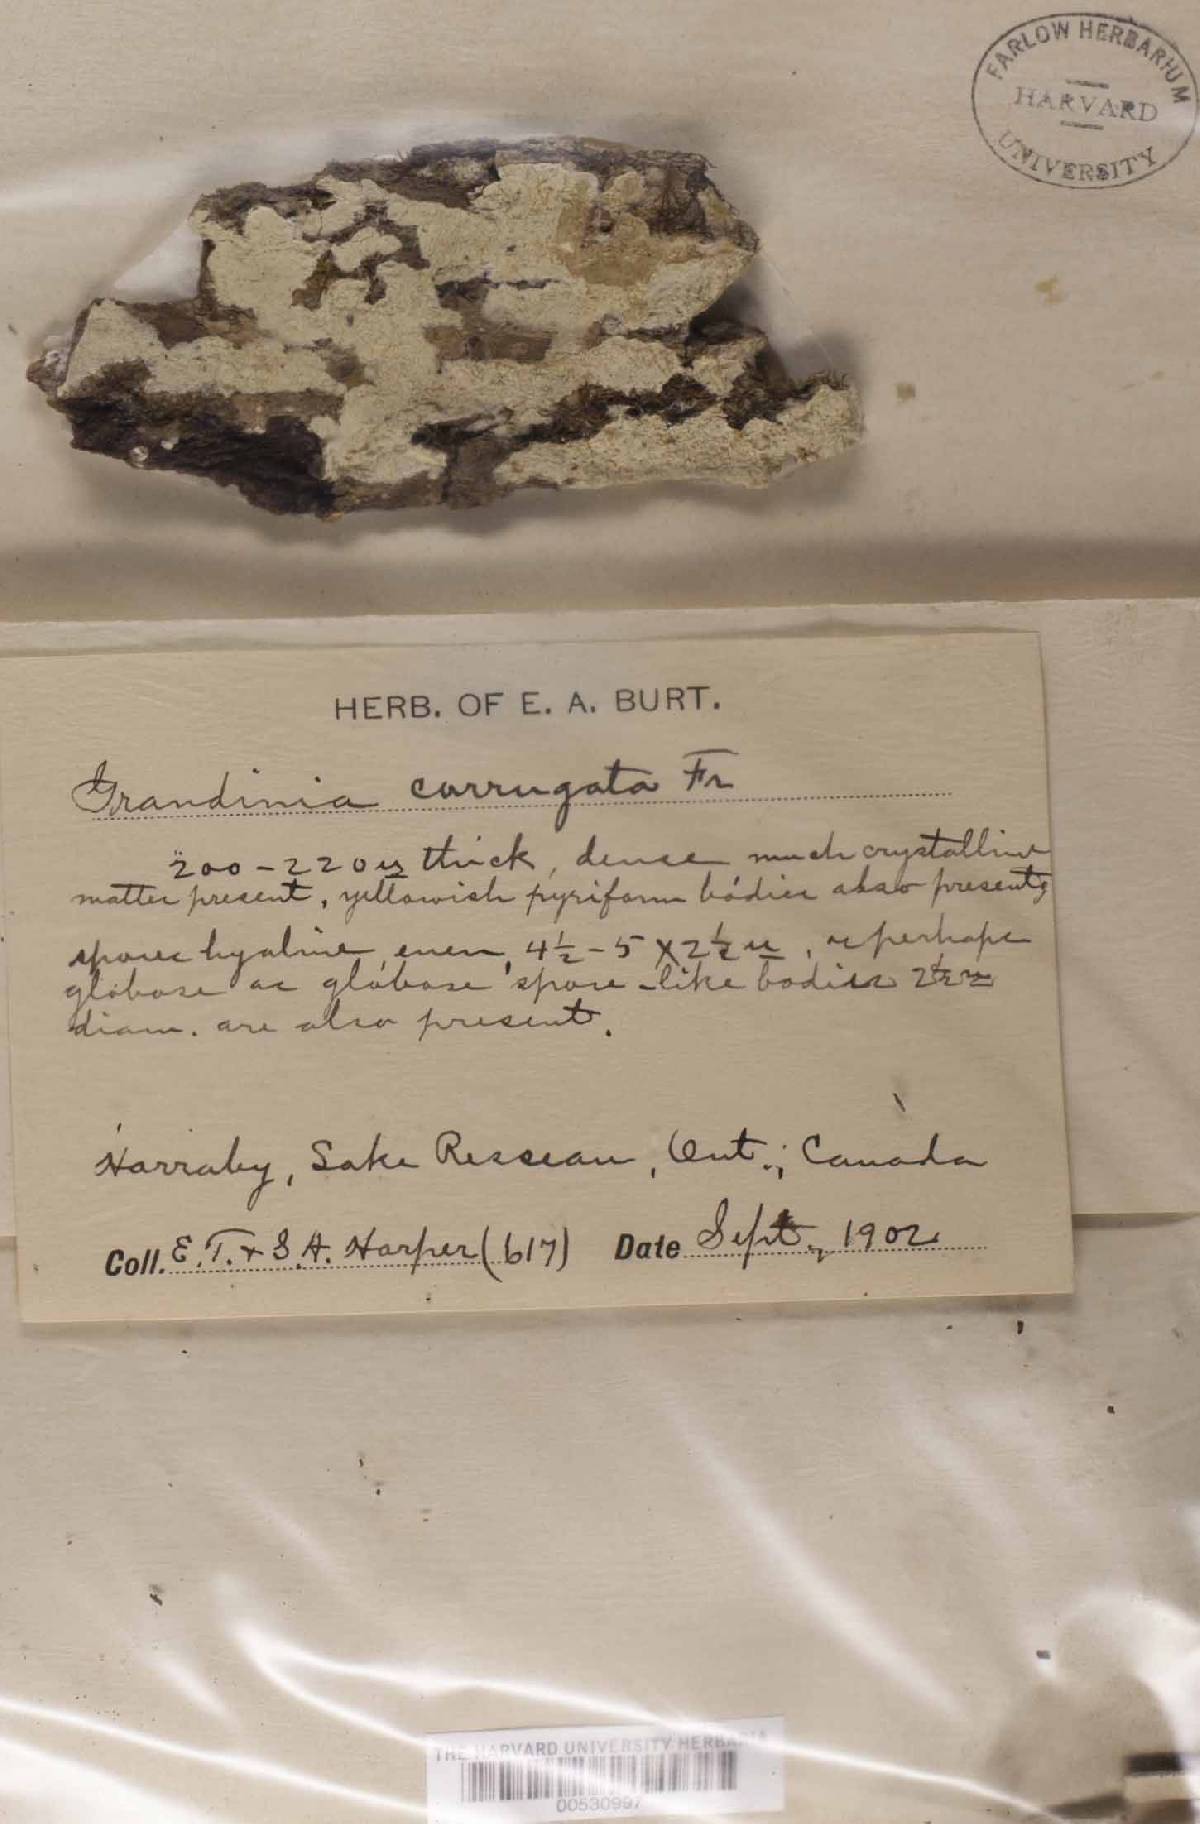 FARLOW HERBARIUM
HARVARD
UNIVERSITY
HERB. OF E. A. BURT.
Grandinia corrugata Fr
200-220 µ thick, dense much crystalline
matter present, yellowish pyriform bodies also present;
spores hyaline, even, 4½-5 x 2½ µ, or perhaps
globose as globose spore-like bodies 2½ µ
diam. are also present.
Harraby, Lake Rosseau, Ont., Canada
Coll. E. T. + S. A. Harper (617) Date Sept., 1902
THE HARVARD UNIVERSITY HERBARIA
00530997